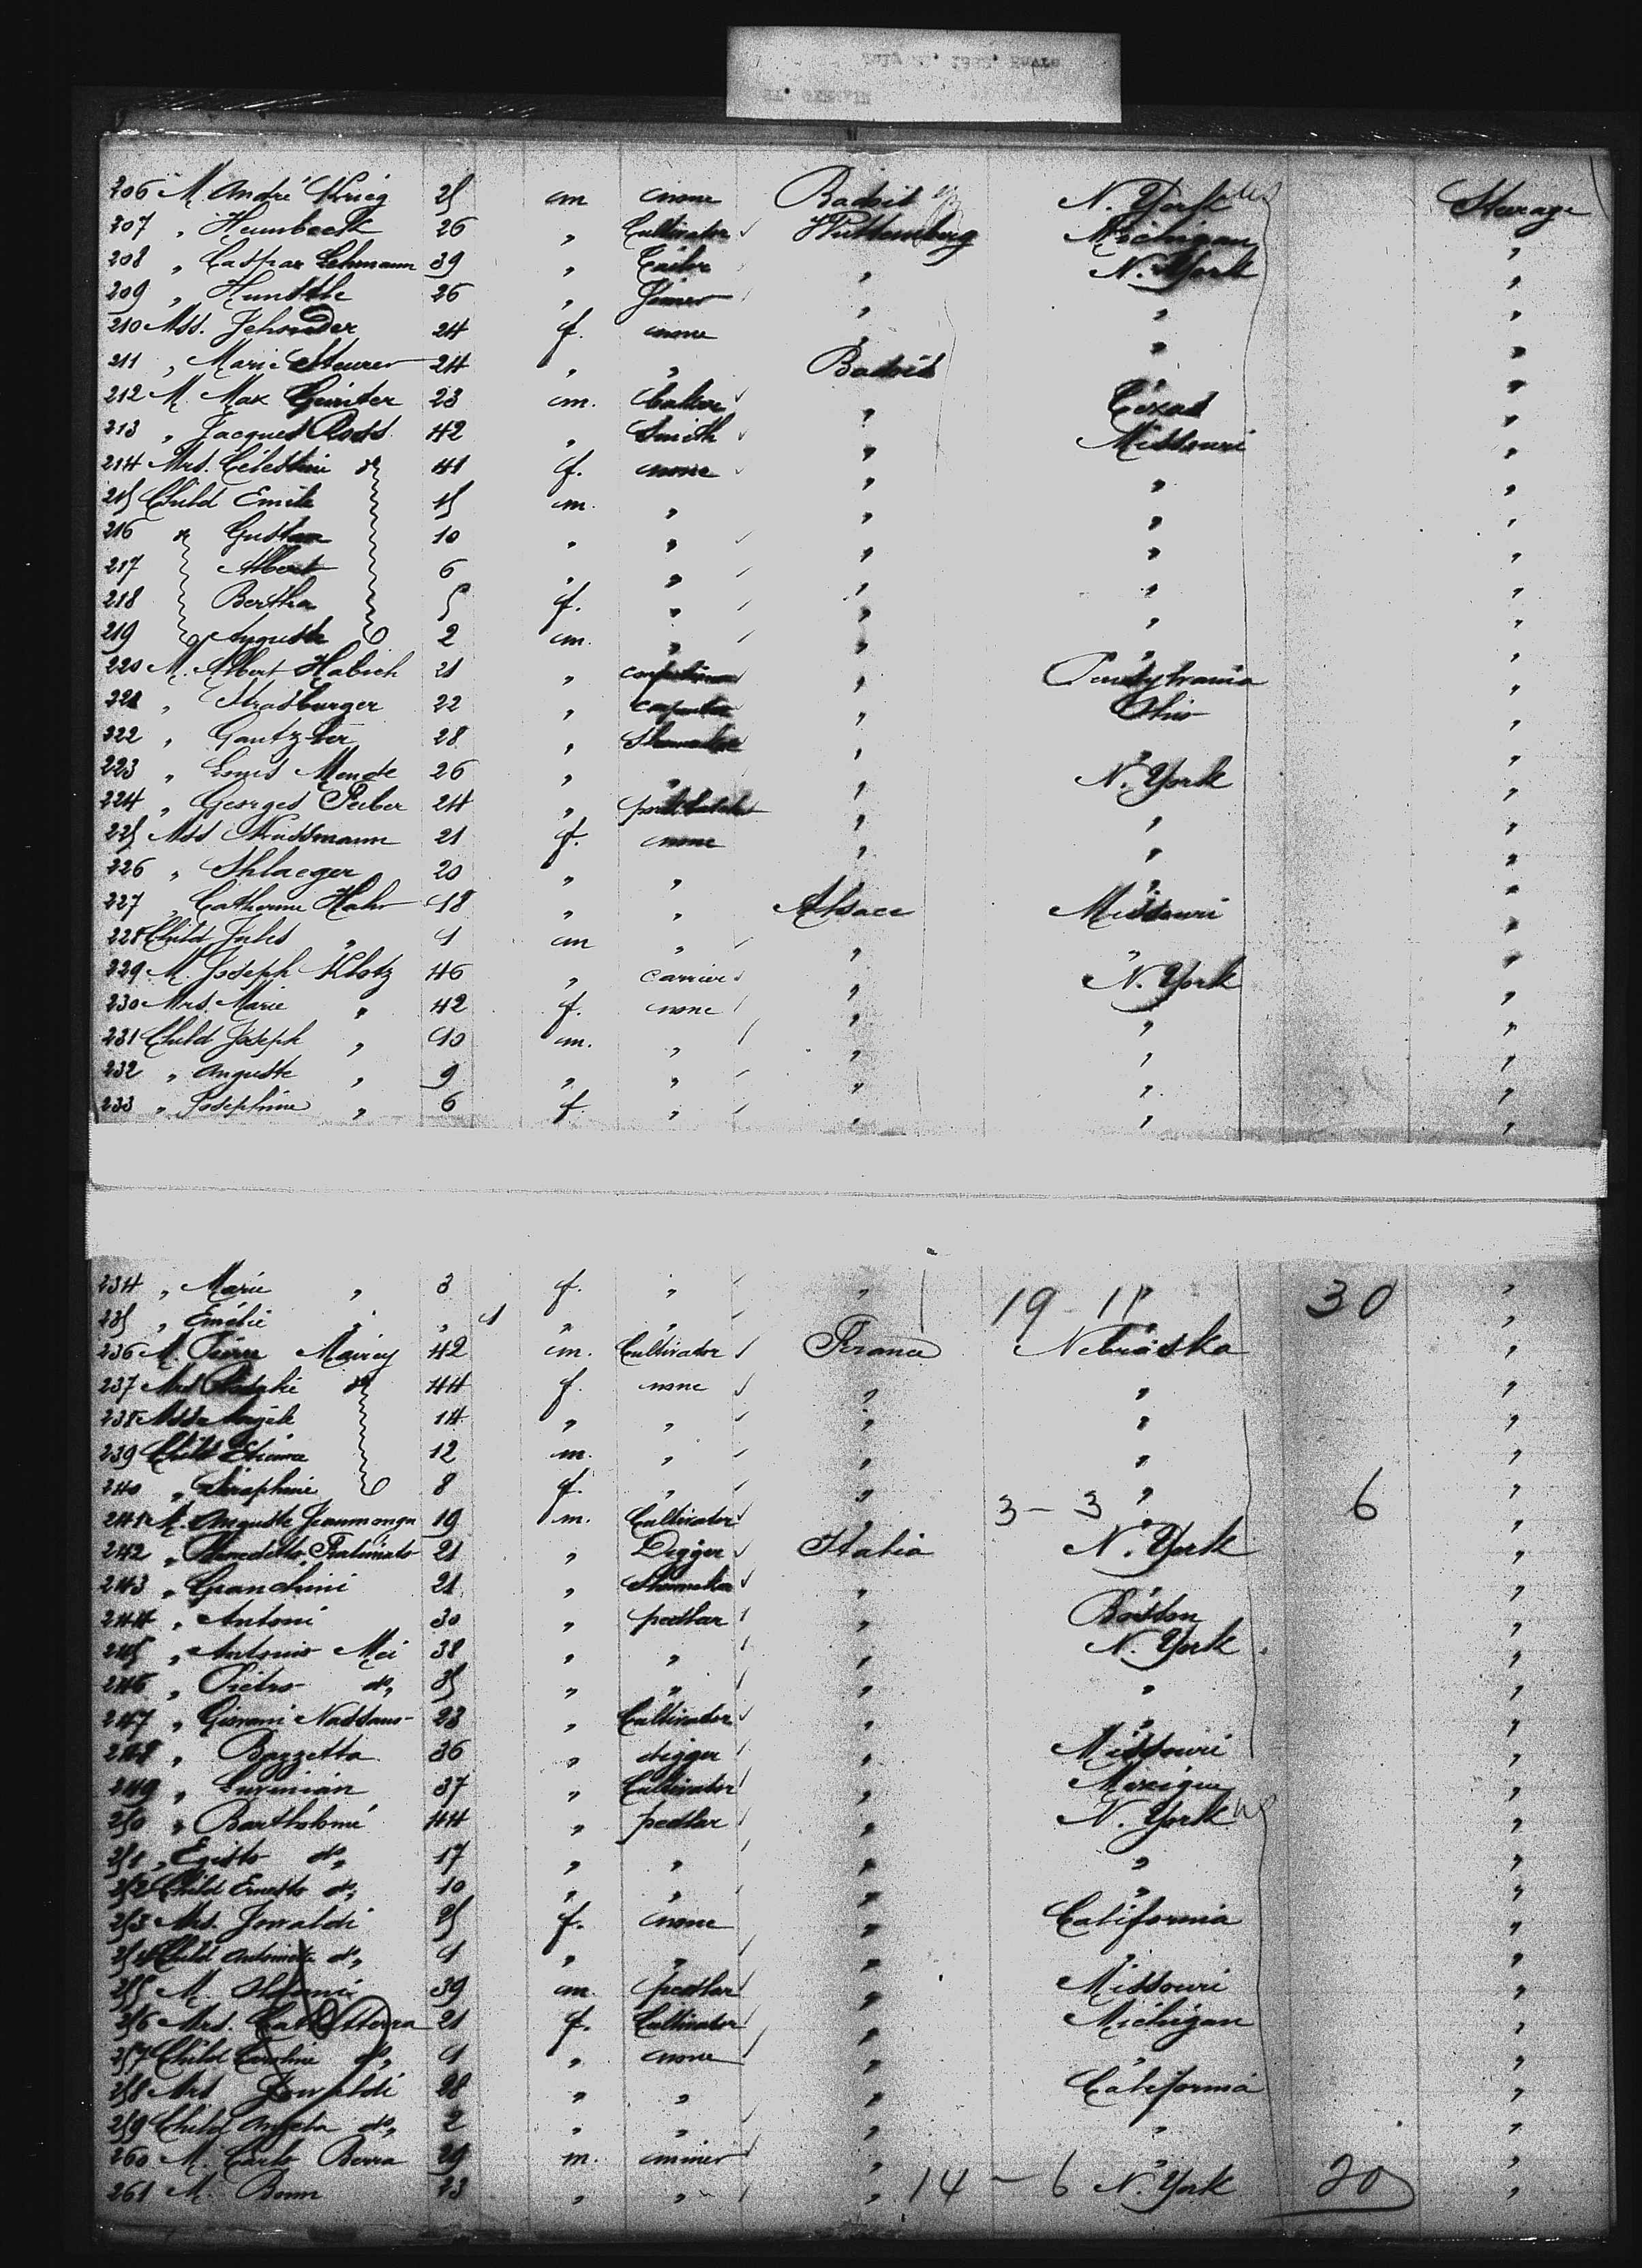 206 M. André Krieg 25 m none Badois N. York Steerage
207 " Humbeck 26 " Cultivator Wuttemberg Michigan "
208 " Caspar Lehmann 39 " Tailor " N. York "
209 " 26 " Joiner " " "
210 Mss. Schneider 24 f. none " " "
211 " Marie Steurer 24 " " Badois " "
212 M. Max 23 m. baker " Texas "
213 " Jacques Ross 42 " Smith " Missouri "
214 Mrs. Célestine do 41 f. none " " "
215 Child Emile 15 m. " " " "
216 " Gustave 10 " " " " "
217 Albert 6 " " " " "
218 Bertha 5 f. " " " "
219 Auguste 2 m. " " " "
220 M. Albert Habich 21 " " Pensylvania "
221 " Strasburger 22 " carpenter " Ohio "
222 " 28 " Shoemaker " " "
223 " Louis Mende 26 " " " N. York "
224 " Georges 24 " " " "
225 Mss Nussmann 21 f. none " " "
226 " Shlaeger 20 " " " " "
227 " Catherine Hahn 18 " " Alsace Missouri "
228 Child Jules " 1 m " " " "
229 M. Joseph Klotz 46 " carrier " N. York "
230 Mrs. Marie " 42 f. none " " "
231 Child Joseph " 10 m. " " " "
232 " Auguste " 9 " " " " "
233 " Josephine " 6 f. " " " "
234 " Marie " 3 f. " " 19 - 11 " 30 "
235 " Emélie " " 1 " " " "
236 M. Pierre Mairey 42 m. Cultivator France Nebraska "
237 Mrs Rosalie do 44 f. none " " "
238 Mss Angèle 14 " " " " "
239 Child Etienne 12 m. " " " "
240 " Séraphine 8 f. " " " "
241 M. Auguste 19 m. Cultivator " 3 - 3 " 6 "
242 " Benedetto 21 " Digger Italia N. York "
243 " Granchini 21 " Shoemaker " " "
244 " Antoni 30 " pedlar " Boston "
245 " Antonio Mei 38 " " " N. York "
246 " Pietro do 35 " " " " "
247 " Giovani Nassano 23 " Cultivator " " "
248 " Bazzetta 36 " digger " Missouri "
249 " 37 " Cultivator " Mexique "
250 " Bartholomé 44 " pedlar " N. York "
251 " Egisto do 17 " " " " "
252 Child Ernesto do 10 " " " " "
253 Mrs. 25 f. none " California "
254 Child do 1 " " " " "
255 M. 39 m. pedlar " Missouri "
256 Mrs. 21 f. Cultivator " Michigan "
257 Child Caroline do 1 " none " " "
258 Mrs 28 " " " California "
259 Child Angela do 2 " " " " "
260 M. Carlo Berra 29 m. miner " " "
261 M. Bonn 23 " " " 14 - 6 N. York 20 "